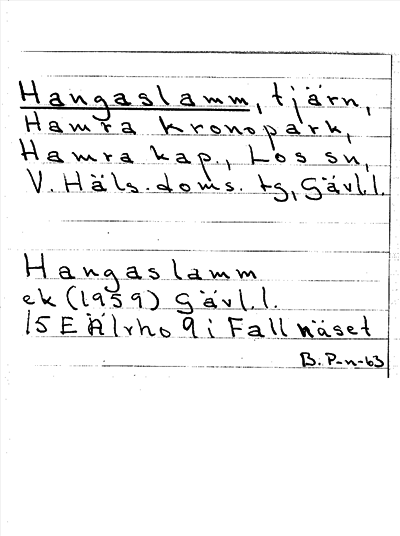 Hangaslamm, tjärn,
Hamra kronopark,
Hamra kap., Los sn,
V. Häls. doms. tg, Gävl.l.
Hangaslamm
ek (1959) Gävl.l.
15E Älvho 9 i Fallnäset
B. P-n-63